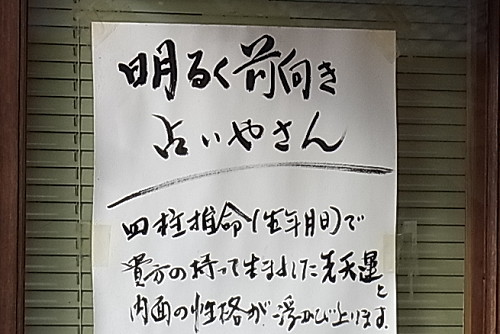 明るく前向き
占いやさん
四柱推命(生年月日)で
貴方の持って生まれた先天運と
内面の性格が浮かび上ります